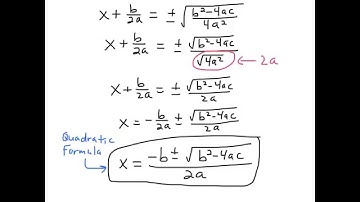 x + b/2a = ±√(b²-4ac/4a²)
x + b/2a = ± √(b²-4ac)/√(4a²) ← 2a
x + b/2a = ± √(b²-4ac)/2a
x = -b/2a ± √(b²-4ac)/2a
Quadratic Formula
x = -b ± √(b²-4ac)/2a